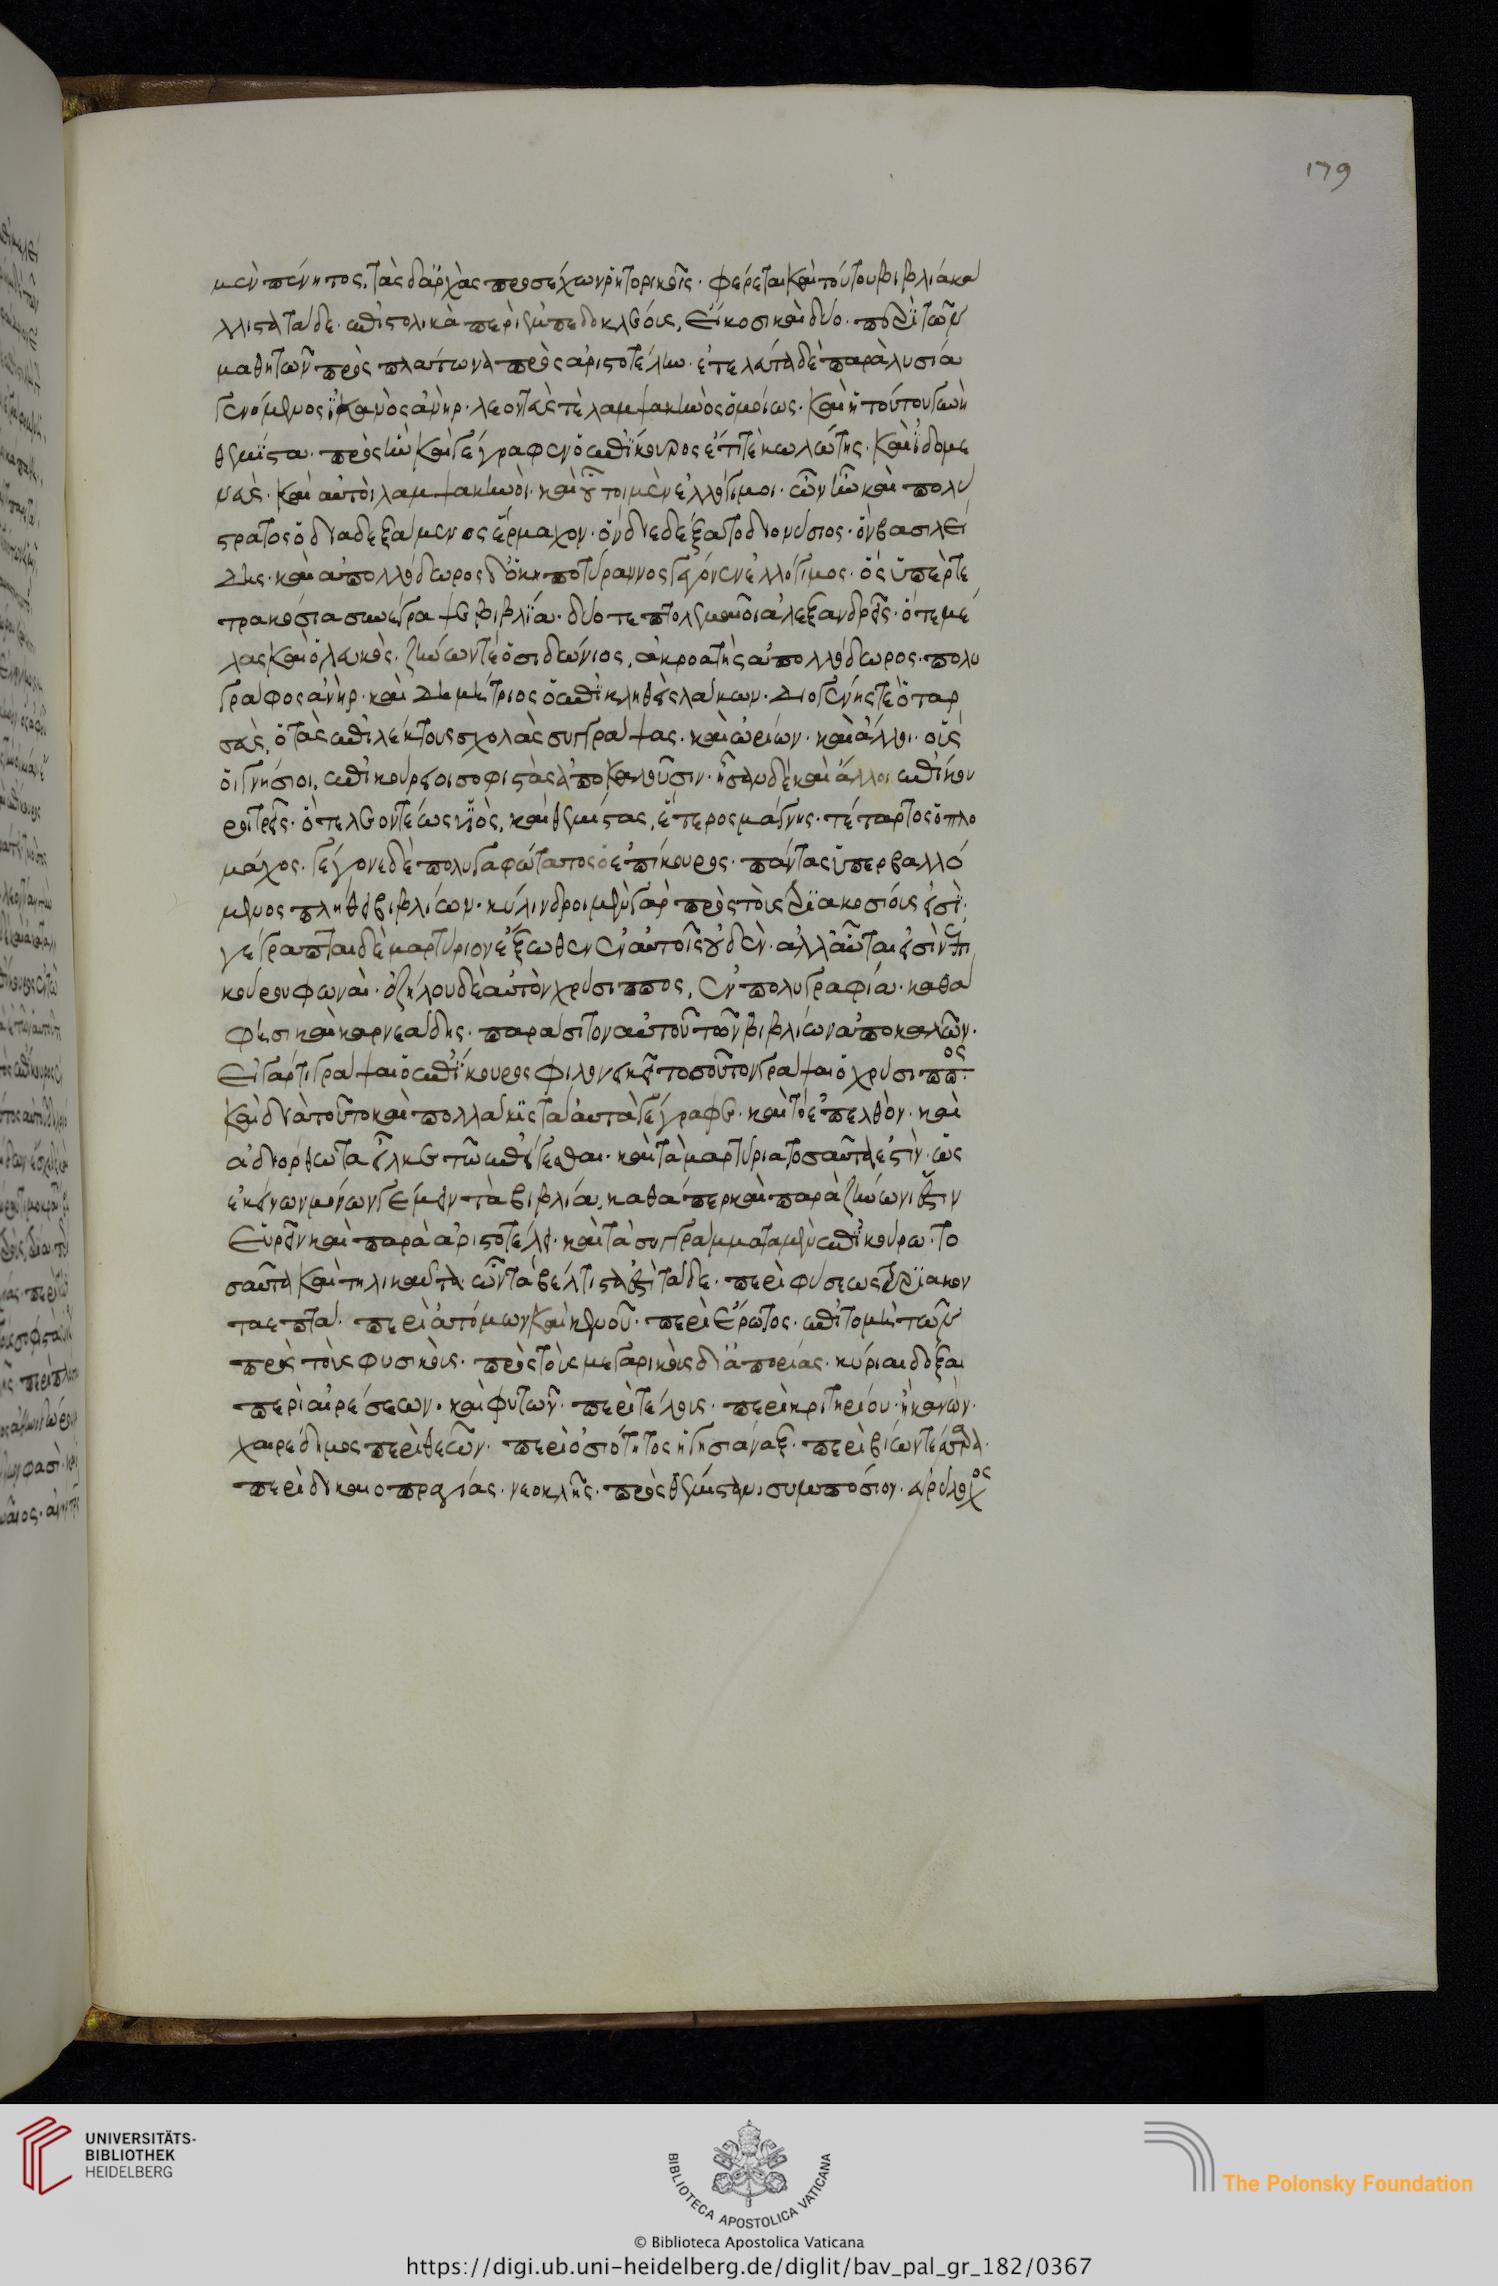 179
μὲν πένητος, τὰς δ' ἀρχὰς προσέχων ῥητορικοῖς· φέρεται καὶ τούτου βιβλία κά
λλιστα τάδε· ἐπιστολικὰ περὶ ἐμπεδοκλέους, εἴκοσι καὶ δύο·
μαθητῶν πρὸς πλάτωνα πρὸς ἀριστοτέλην· ἐτελεύτα δὲ παραλύσει
γενόμενος ἱκανὸς ἀνήρ· λεοντεύς τὲ λαμψακηνὸς ὁμοίως· καὶ ἡ τούτου γυνὴ
θεμίστα· πρὸς ἣν καὶ γέγραφεν ὁ ἐπίκουρος ἔτι τὲ κωλώτης· καὶ ἰδομε
νεύς· καὶ αὐτοὶ λαμψακηνοί· καὶ οὗτοι μὲν ἐλλόγιμοι· ὧν ἦν καὶ πολύ
στρατος ὁ διαδεξάμενος ἕρμαχον· ὃν διεδέξατο διονύσιος· ὃν βασιλεί
δης· καὶ ἀπολλόδωρος δ' ὁ κηποτύραννος γέγονεν ἐλλόγιμος· ὃς ὑπὲρ τε
τρακόσια συνέγραψε βιβλία· δύο τε πτολεμαῖοι ἀλεξανδρεῖς· ὅ τε μέ
λας καὶ ὁ λευκός· ζήνων τὲ ὁ σιδώνιος, ἀκροατὴς ἀπολλόδωρος· πολυ
γράφος ἀνήρ· καὶ δημήτριος ὁ ἐπικληθεὶς λάκων· διογένης τὲ ὁ ταρ
σεύς, ὁ τὰς ἐπιλέκτους σχολὰς συγγράψας· καὶ ὠρίων· καὶ ἄλλοι· οὓς
οἱ γνήσιοι, ἐπικούρειοι σοφιστὰς ἀποκαλοῦσιν· ἦσαν δὲ καὶ ἄλλοι ἐπίκου
ροι τρεῖς· ὅ τε λεοντέως υἱὸς, καὶ θεμίστας, ἕτερος μάγνης· τέταρτος ὁπλο
μάχος· γέγονε δὲ πολυγραφώτατος ὁ ἐπίκουρος· πάντας ὑπερβαλλό
μενος πλήθει βιβλίων· κύλινδροι μὲν γὰρ πρὸς τοὺς τριακοσίους εἰσὶ·
γέγραπται δὲ μαρτύριον ἔξωθεν ἐν αὐτοῖς οὐδὲν· ἀλλ' αὗται εἰσὶν ἐπι
κούρου φωναὶ· ἐζήλου δὲ αὐτὸν χρύσιππος, ἐν πολυγραφίᾳ· καθά
φησι καὶ καρνεάδης· παράσιτον αὐτοῦ τῶν βιβλίων ἀποκαλῶν·
εἰ γάρ τι γράψαι ὁ ἐπίκουρος φιλονεικεῖ τοσοῦτον γράψαι ὁ χρύσιππος·
καὶ διὰ τοῦτο καὶ πολλάκις ταὐτὰ γέγραφε· καὶ τὸ ἐπελθὸν· καὶ
ἀδιόρθωτα εἴληκε τῷ ἐπείγεσθαι· καὶ τὰ μαρτύρια τοσαῦτα ἐστὶν· ὡς
ἐκείνων μόνων γέμειν τὰ βιβλία, καθάπερ καὶ παρὰ ζήνωνι ἔστιν
εὑρεῖν καὶ παρὰ ἀριστοτέλει· καὶ τὰ συγγράμματα μὲν ἐπικούρω· το
σαῦτα καὶ τηλικαῦτα· ὧν τὰ βέλτιστα ἐστὶ τάδε· περὶ φύσεως τριακον
ταεπτά· περὶ ἀτόμων καὶ κενοῦ· περὶ ἔρωτος· ἐπιτομὴ τῶν
πρὸς τοὺς φυσικούς· πρὸς τοὺς μεγαρικοὺς διαπορίας· κύριαι δόξαι
περὶ αἱρέσεων· καὶ φυτῶν· περὶ τέλους· περὶ κριτηρίου· ἢ κανών·
χαιρέδημος περὶ θεῶν· περὶ ὁσιότητος ἡγησιάναξ· περὶ βίων
περὶ δικαιοπραγίας· νεοκλῆς· πρὸς θεμίσταν· συμπόσιον· εὐρύλοχος
UNIVERSITÄTS-
BIBLIOTHEK
HEIDELBERG
BIBLIOTECA APOSTOLICA VATICANA
The Polonsky Foundation
© Biblioteca Apostolica Vaticana
https://digi.ub.uni-heidelberg.de/diglit/bav_pal_gr_182/0367